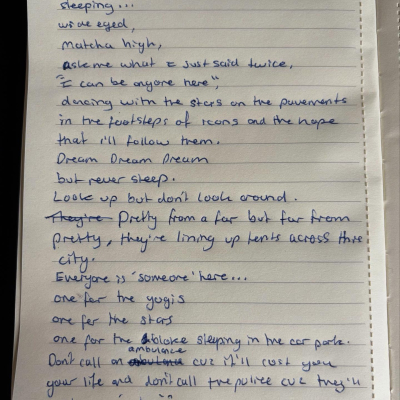 sleeping...
wide eyed,
Matcha high,
ask me what I just said twice,
"I can be anyone here",
dancing with the stars on the pavements
in the footsteps of icons and the hope
that i'll follow them.
Dream Dream Dream
but never sleep.
Look up but don't look around.
They're Pretty from a far but far from
pretty, they're lining up tents across this
city.
Everyone is 'someone' here...
one for the yogis
one for the stars
one for the bloke sleeping in the car park.
Don't call an ambulance cuz it'll cost you
your life and don't call the police cuz they'll